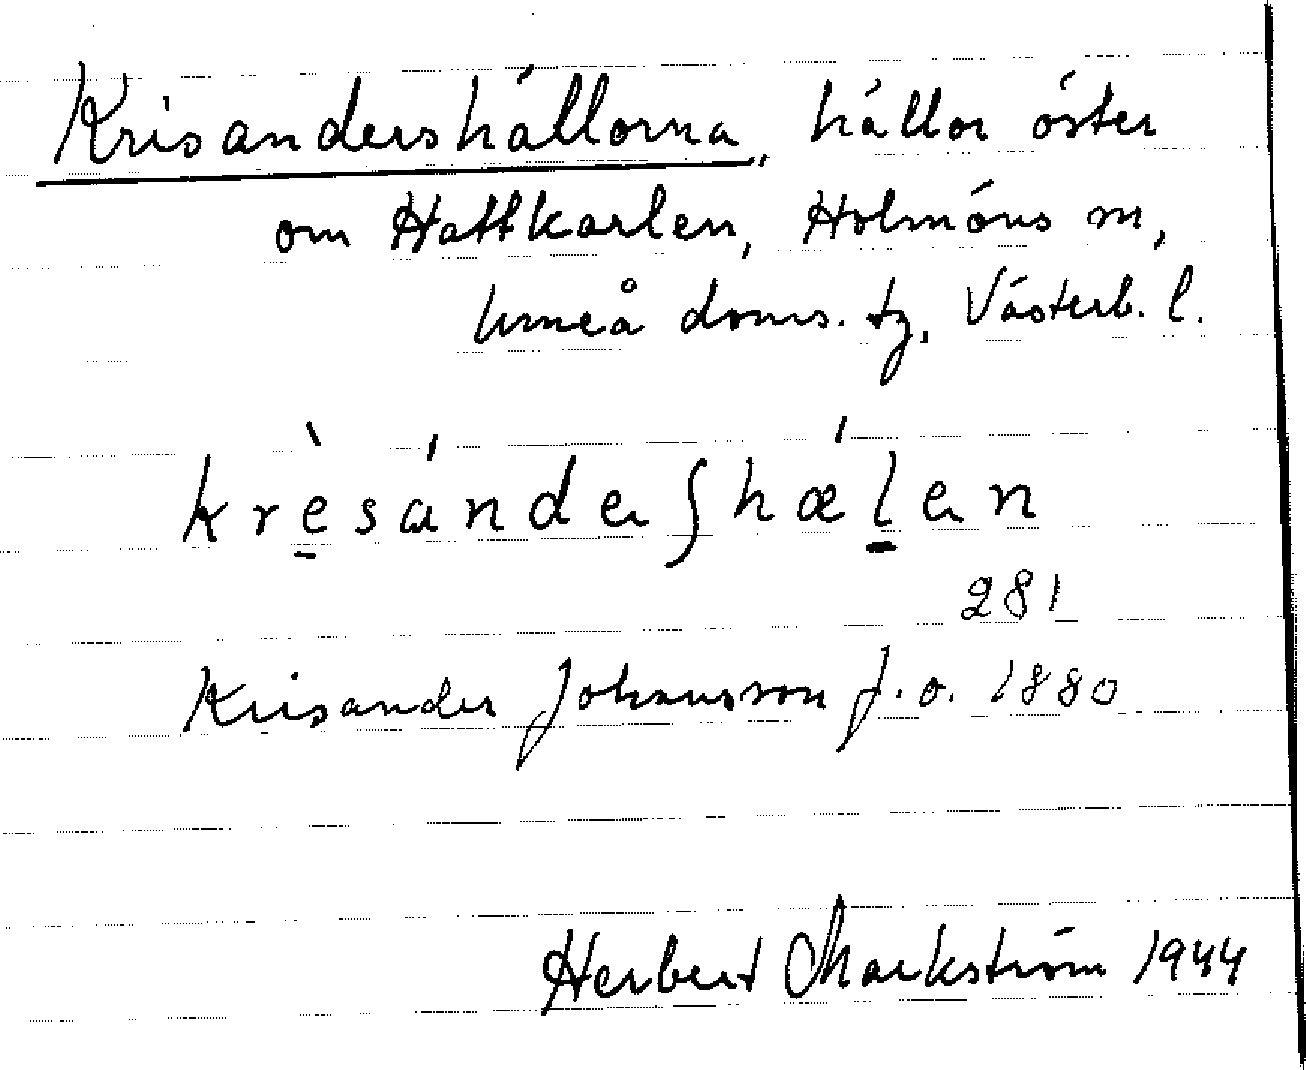 Krisandershällorna, hällor öster
om Hattkarlen, Holmöns sn,
Umeå doms. tg, Västerb. l.
krèsándeʃhælen
281
Krisander Johansson f. o. 1880
Herbert Markström 1944